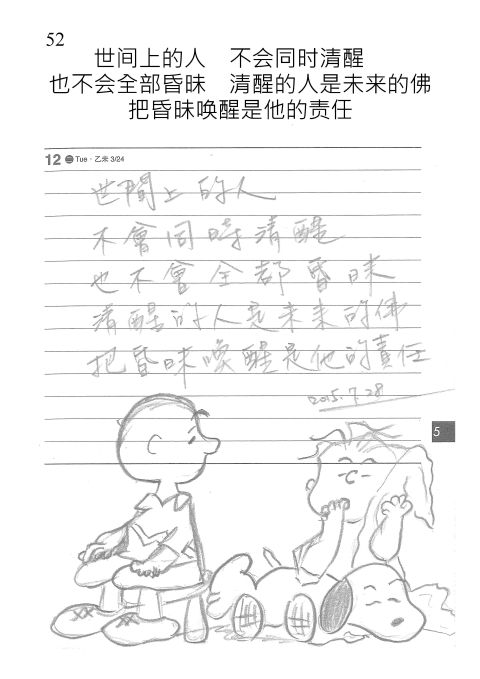 52
世间上的人　不会同时清醒
也不会全部昏昧　清醒的人是未来的佛
把昏昧唤醒是他的责任
12 ㊁ Tue · 乙未 3/24
世間上的人
不會同時清醒
也不會全部昏昧
清醒的人是未来的佛
把昏昧喚醒是他的責任
2015.7.28
5